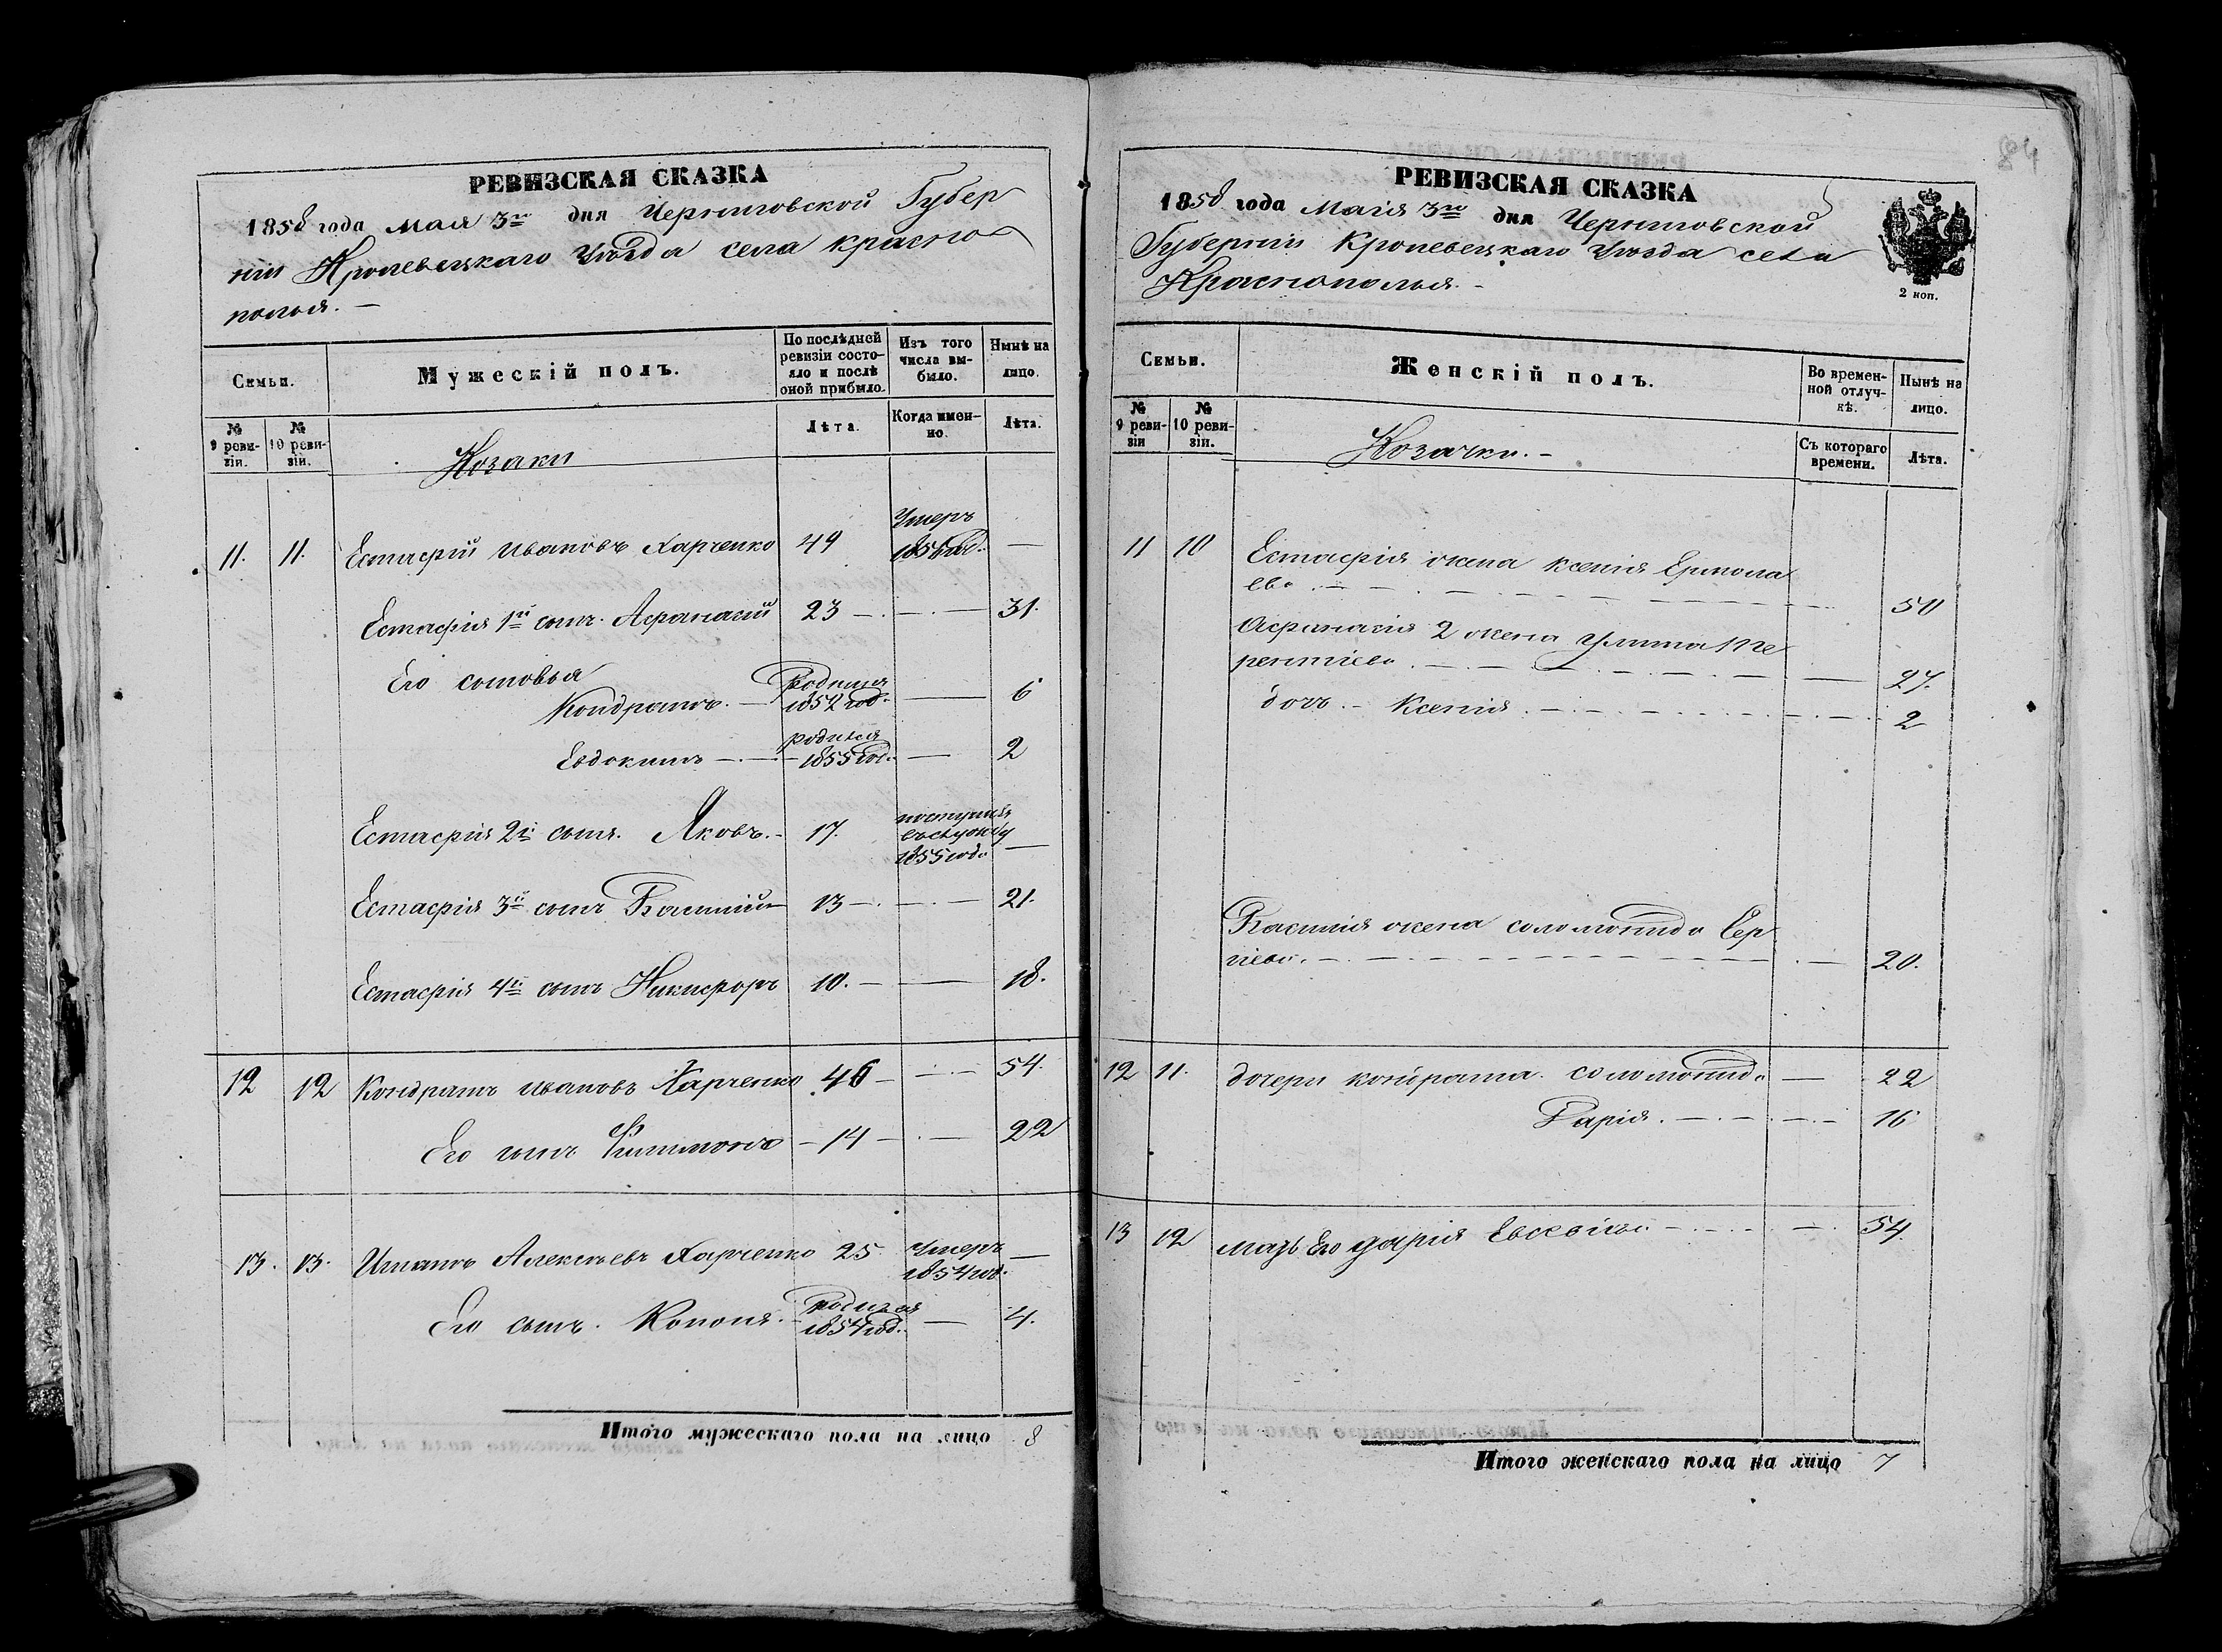 84
РЕВИЗСКАЯ СКАЗКА
1858 года мая 3го дня Черниговской Губер
ніи Кролевецкаго Уѣзда села красно
полья. —
Семьи.
Мужескій полъ.
По послѣдней ревизіи состояло и послѣ оной прибыло.
Изъ того числа выбыло.
Нынѣ на лицо.
№ 9 ревизіи.
№ 10 ревизіи.
Козаки
Лѣта.
Когда именно.
Лѣта.
11. 11. Естафій Ивановъ Харченко 49 Умеръ —
Естафія 1й сынъ Афанасій 23 — 31.
Его сыновья
Кондратъ. — Родился 1852 год. — 6
Евдокимъ — родился 1855 год. — 2
Естафія 2й сынъ. Яковъ. 17. поступилъ
въ службу
1855 года —
Естафія 3й сынъ Василій 13 — 21.
Естафія 4й сынъ Никифоръ 10. — 18.
12 12 Кондратъ Ивановъ Харченко 46 — 54.
Его сынъ Филимонъ — 14 — 22
13. 13. Алексѣевъ Харченко 25 Умеръ 1854 год. —
Его сынъ. Конона. Родился 1854 год. — 4.
Итого мужескаго пола на лицо 8
РЕВИЗСКАЯ СКАЗКА
1858 года Маія 3го дня Черниговской
Губерніи Кролевецкаго Уѣзда села
Краснополья. —
2 коп.
Семьи.
Женскій полъ.
Во временной отлучкѣ.
Нынѣ на лицо.
№ 9 ревизіи
№ 10 ревизіи.
Козачки. —
Съ котораго времени.
Лѣта.
11 10 Естафія жена ксенія Ермола
ева 50
Афанасія 2 жена Улита Те
рентіева 27.
дочь. — Ксенія 2
Василія жена соломонида Сер
гіева. 20.
12 11. дочери кондрата. соломонида — 22
Дарія. 16
13 12 мать Его дарія Евсевіева 54
Итого женскаго пола на лицо 7